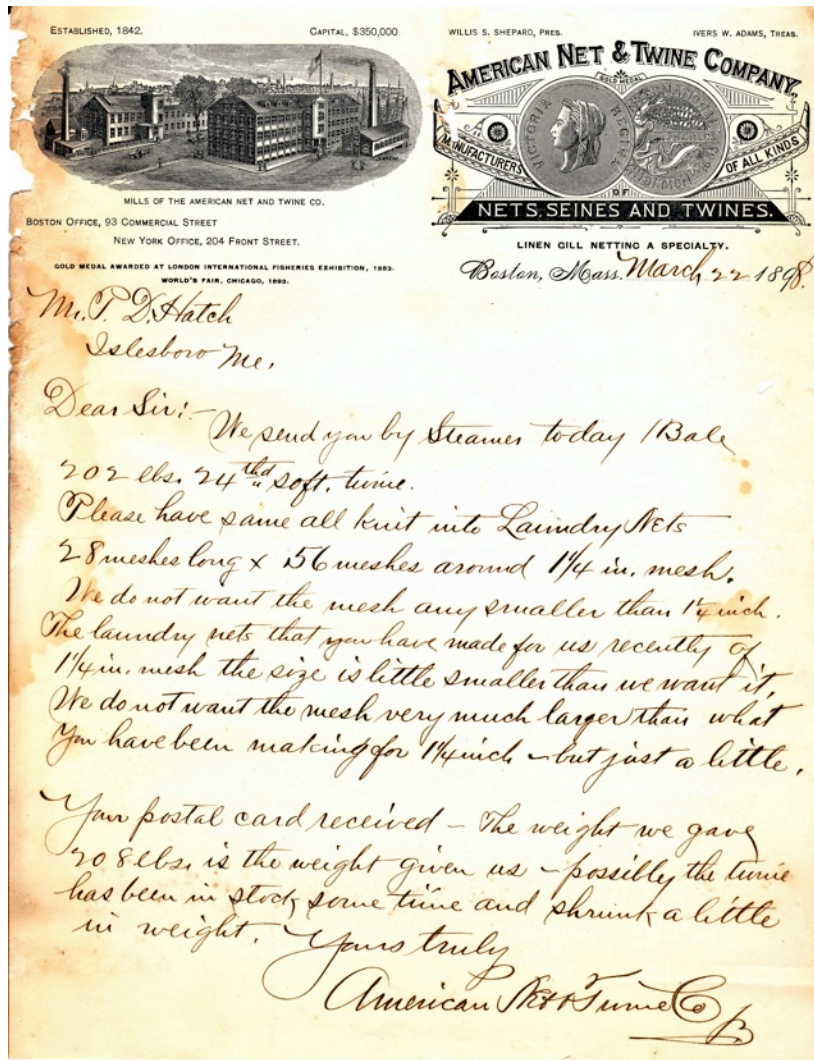 ESTABLISHED, 1842.
CAPITAL, $350,000.
MILLS OF THE AMERICAN NET AND TWINE CO.
BOSTON OFFICE, 93 COMMERCIAL STREET
NEW YORK OFFICE, 204 FRONT STREET.
GOLD MEDAL AWARDED AT LONDON INTERNATIONAL FISHERIES EXHIBITION, 1883.
WORLD'S FAIR, CHICAGO, 1893.
WILLIS S. SHEPARD, PRES.
IVERS W. ADAMS, TREAS.
AMERICAN NET & TWINE COMPANY,
GOLD MEDAL
VICTORIA REGINA
MANUFACTURERS
OF ALL KINDS
OF
NETS, SEINES AND TWINES.
LINEN GILL NETTING A SPECIALTY.
Boston, Mass. March 22 1898.
Mr. P. D. Hatch
Islesboro Me.
Dear Sir:-
We send you by Steamer today 1 Bale
202 lbs. 24 thd soft. twine.
Please have same all knit into Laundry Nets
28 meshes long x 56 meshes around 1 1/4 in. mesh.
We do not want the mesh any smaller than 1 1/4 inch.
The laundry nets that you have made for us recently of
1 1/4 in. mesh the size is little smaller than we want it.
We do not want the mesh very much larger than what
you have been making for 1 1/4 inch - but just a little.
Your postal card received - The weight we gave
208 lbs. is the weight given us - possilly the twine
has been in stock some time and shrunk a little
in weight. Yours truly
American Net & Twine Co
B